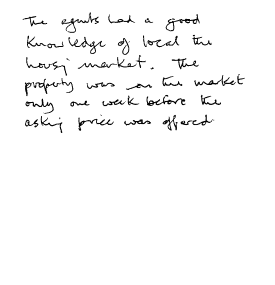 The agents had a good
knowledge of local the
housing market. The
property was on the market
only one week before the
asking price was offered